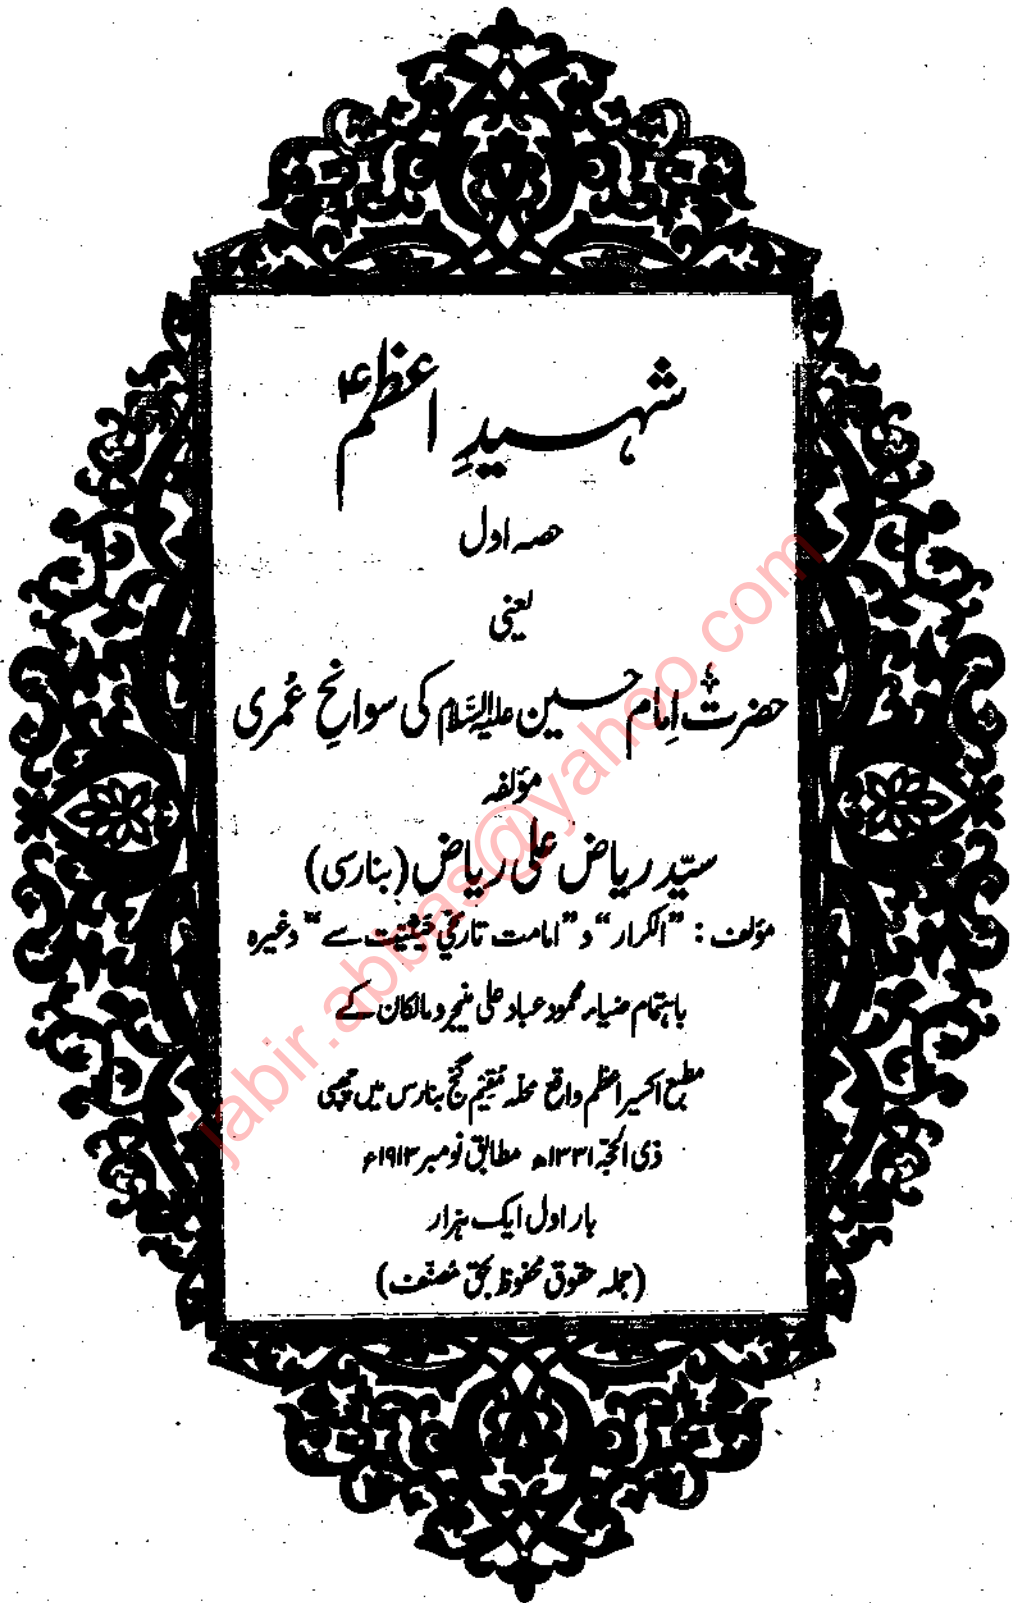 شہیدِ اعظمؑ
حصہ اول
یعنی
حضرت امام حسین علیہ السّلام کی سوانحِ عُمری
مؤلفہ
سیّد ریاض علی ریاض (بنارسی)
مؤلف: "الکرار" و "امامت تاریخی حیثیت سے" وغیرہ
باہتمام ضیاء محمود عباد علی منیجر و مالکان کے
مطبع اکسیر اعظم واقع محلہ مُقیم گنج بنارس میں چھپی
ذی الحجّہ ۱۳۳۱ھ مطابق نومبر ۱۹۱۳ء
بار اول ایک ہزار
(جملہ حقوق محفوظ بحق مُصنّف)
jabir.abbas@yahoo.com